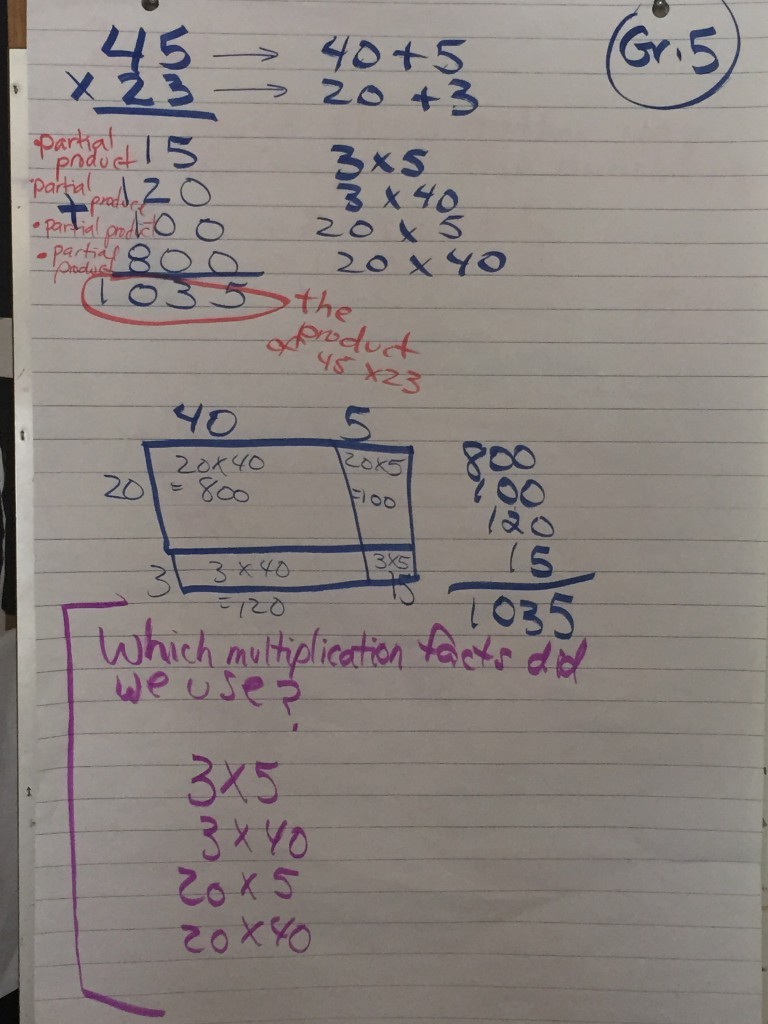 Gr.5
45 → 40 + 5
x 23 → 20 + 3
• partial product 15 3 x 5
• partial produce 120 3 x 40
+ • partial product 100 20 x 5
• partial product 800 20 x 40
1035 the
product
of 45 x 23
40 5
20 20x40 20x5 800
= 800 =100 100
120
3 3 x 40 3x5 15
=120 15 1035
Which multiplication facts did
we use?
3x5
3 x 40
20 x 5
20 x 40